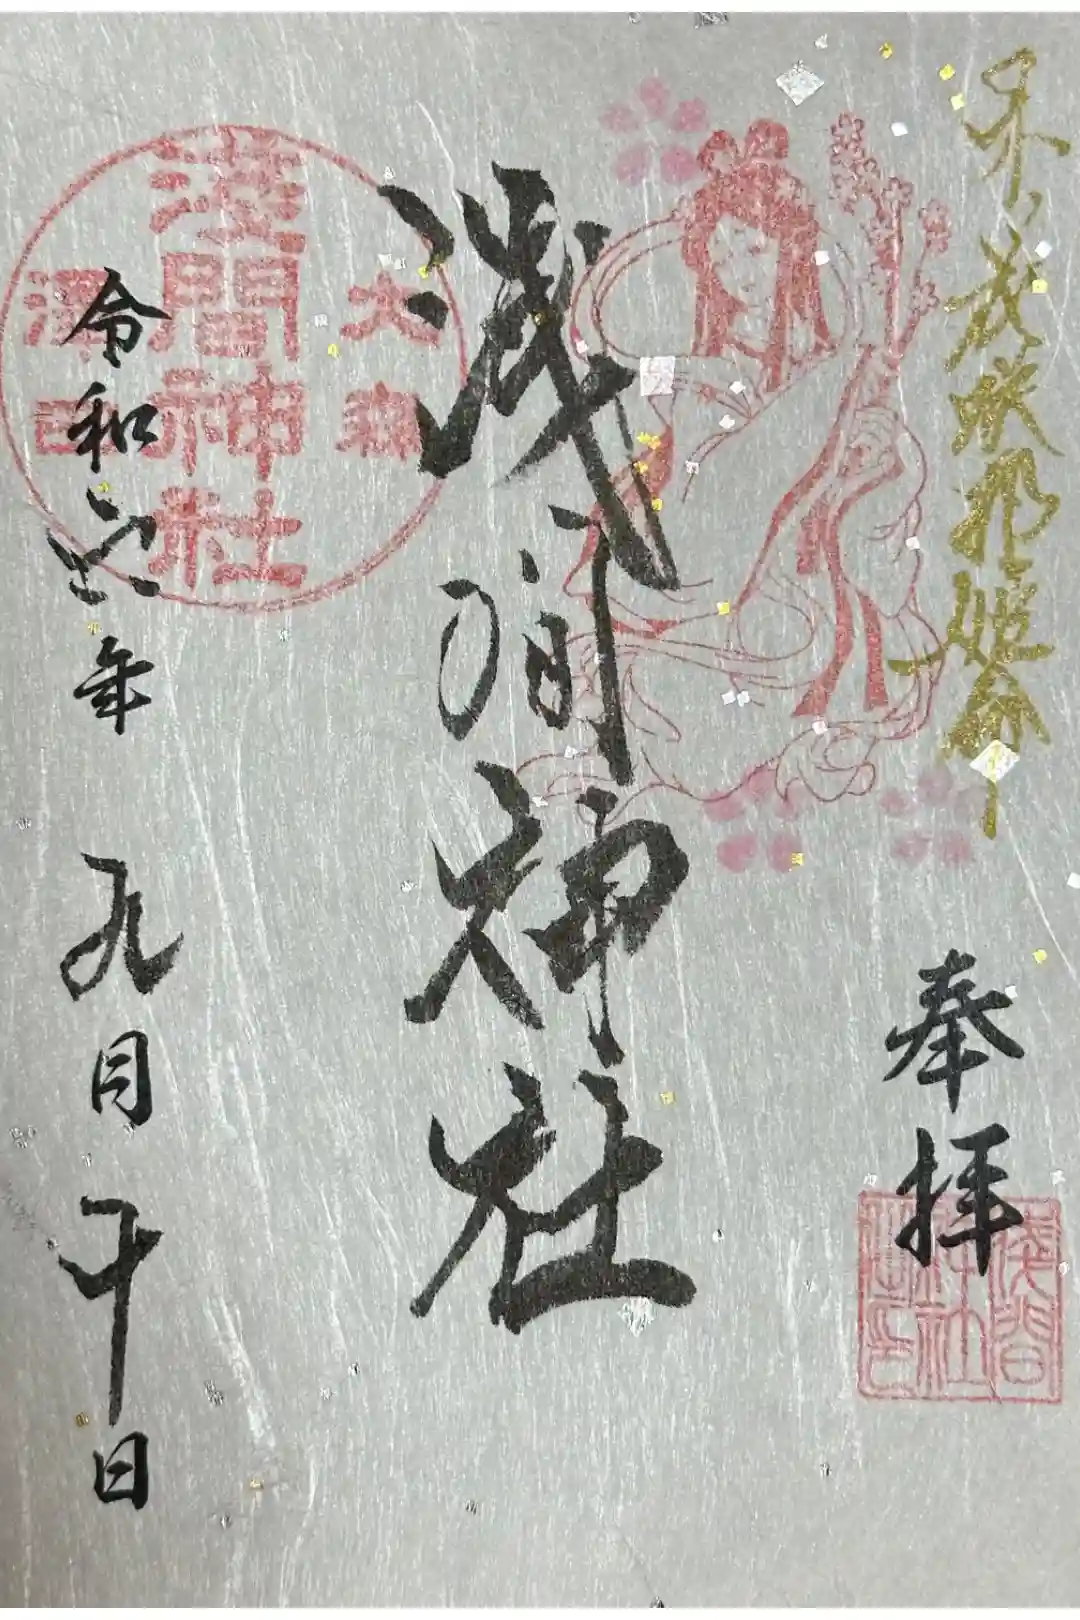 木花咲耶姫命
奉拝
浅間神社之印
浅間神社
淺間神社
令和六年九月十日